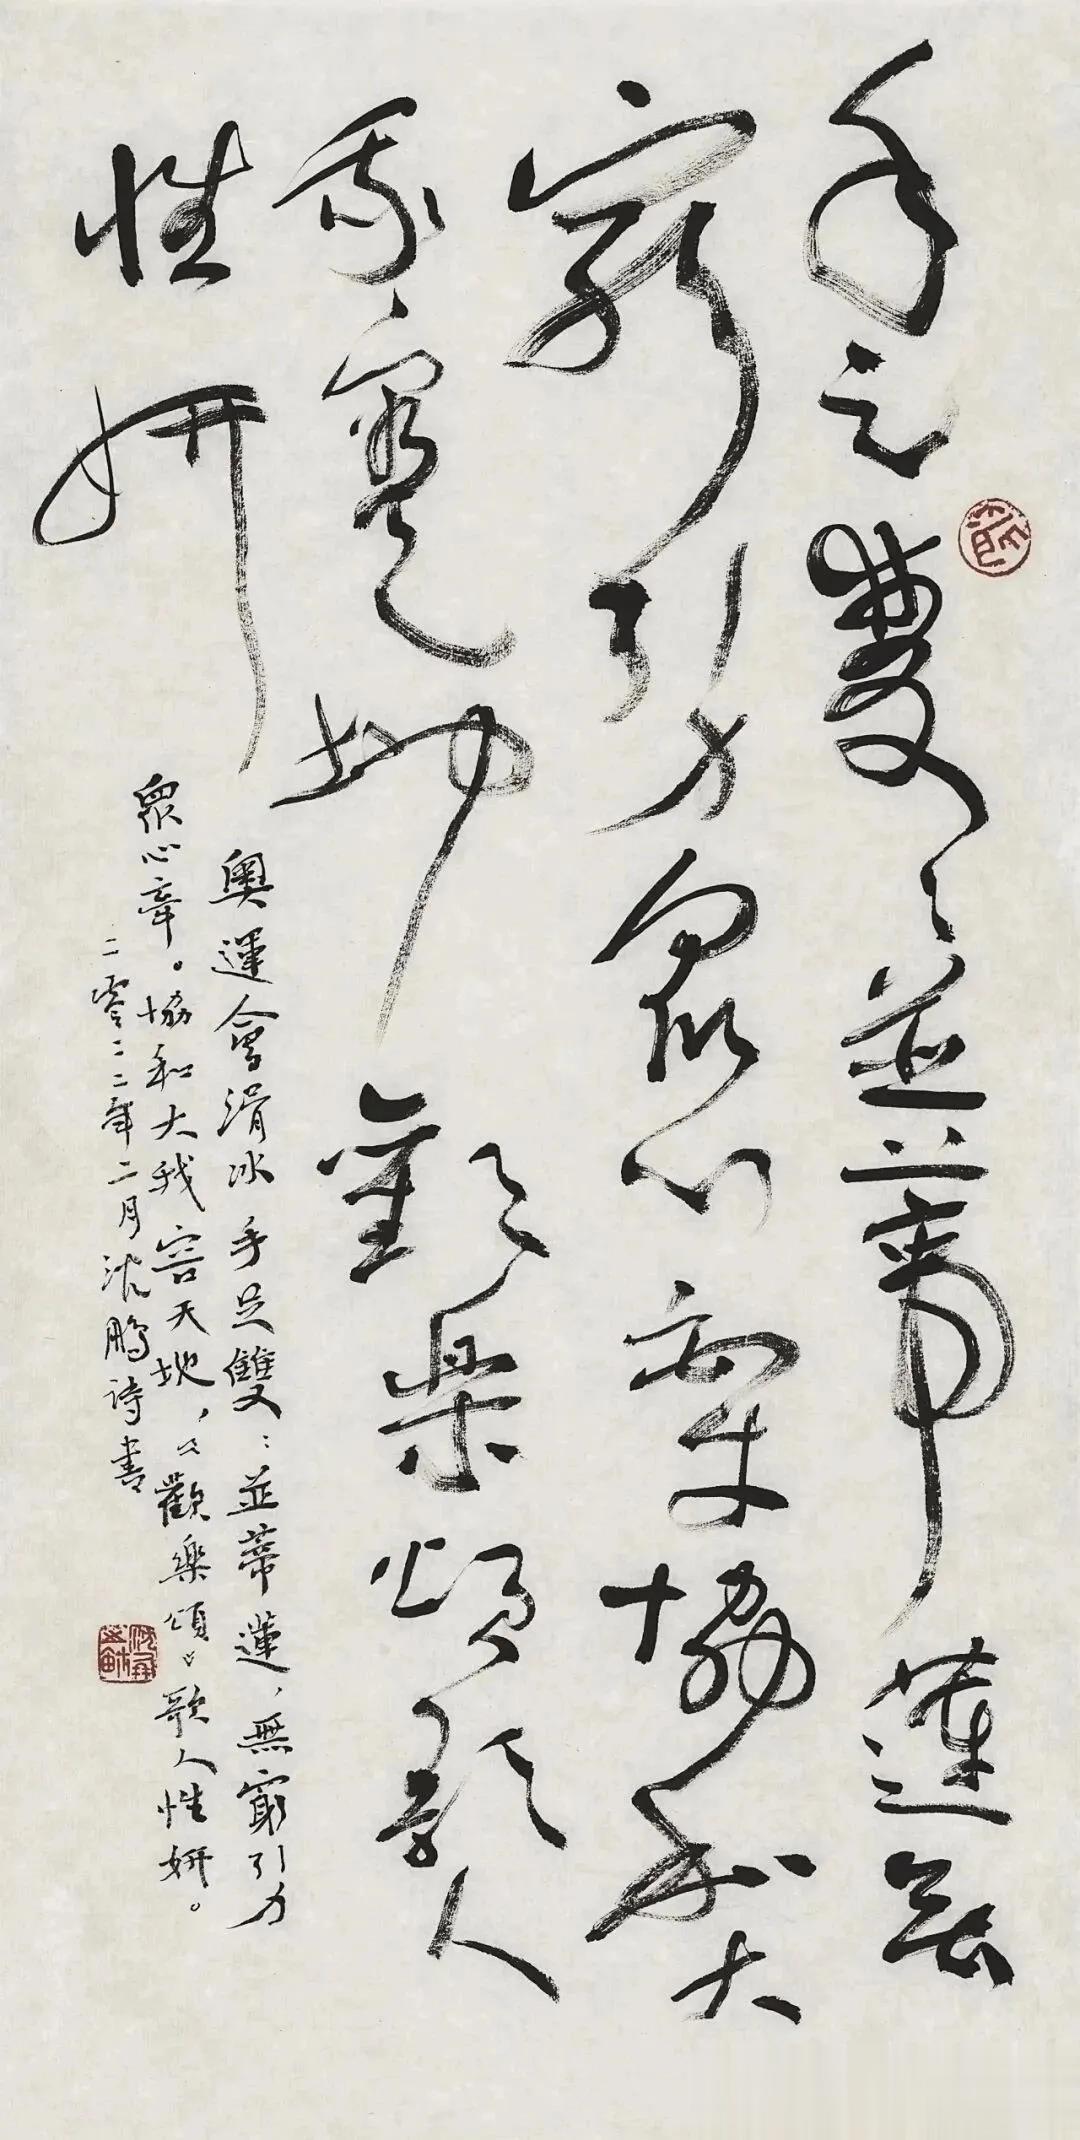 手足雙〻並蒂蓮無
窮引力眾心牽協和大
我容天地歡樂頌歌人
性妍
奧運會滑冰 手足雙〻並蒂蓮，無窮引力
眾心牽。協和大我容天地，《歡樂頌》歌人性妍。
二零二二年二月沈鵬詩書